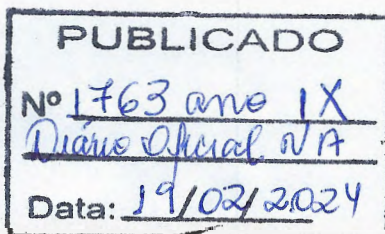 PUBLICADO
Nº 1763 ano IX
Diário Oficial NA
Data: 19/02/2024